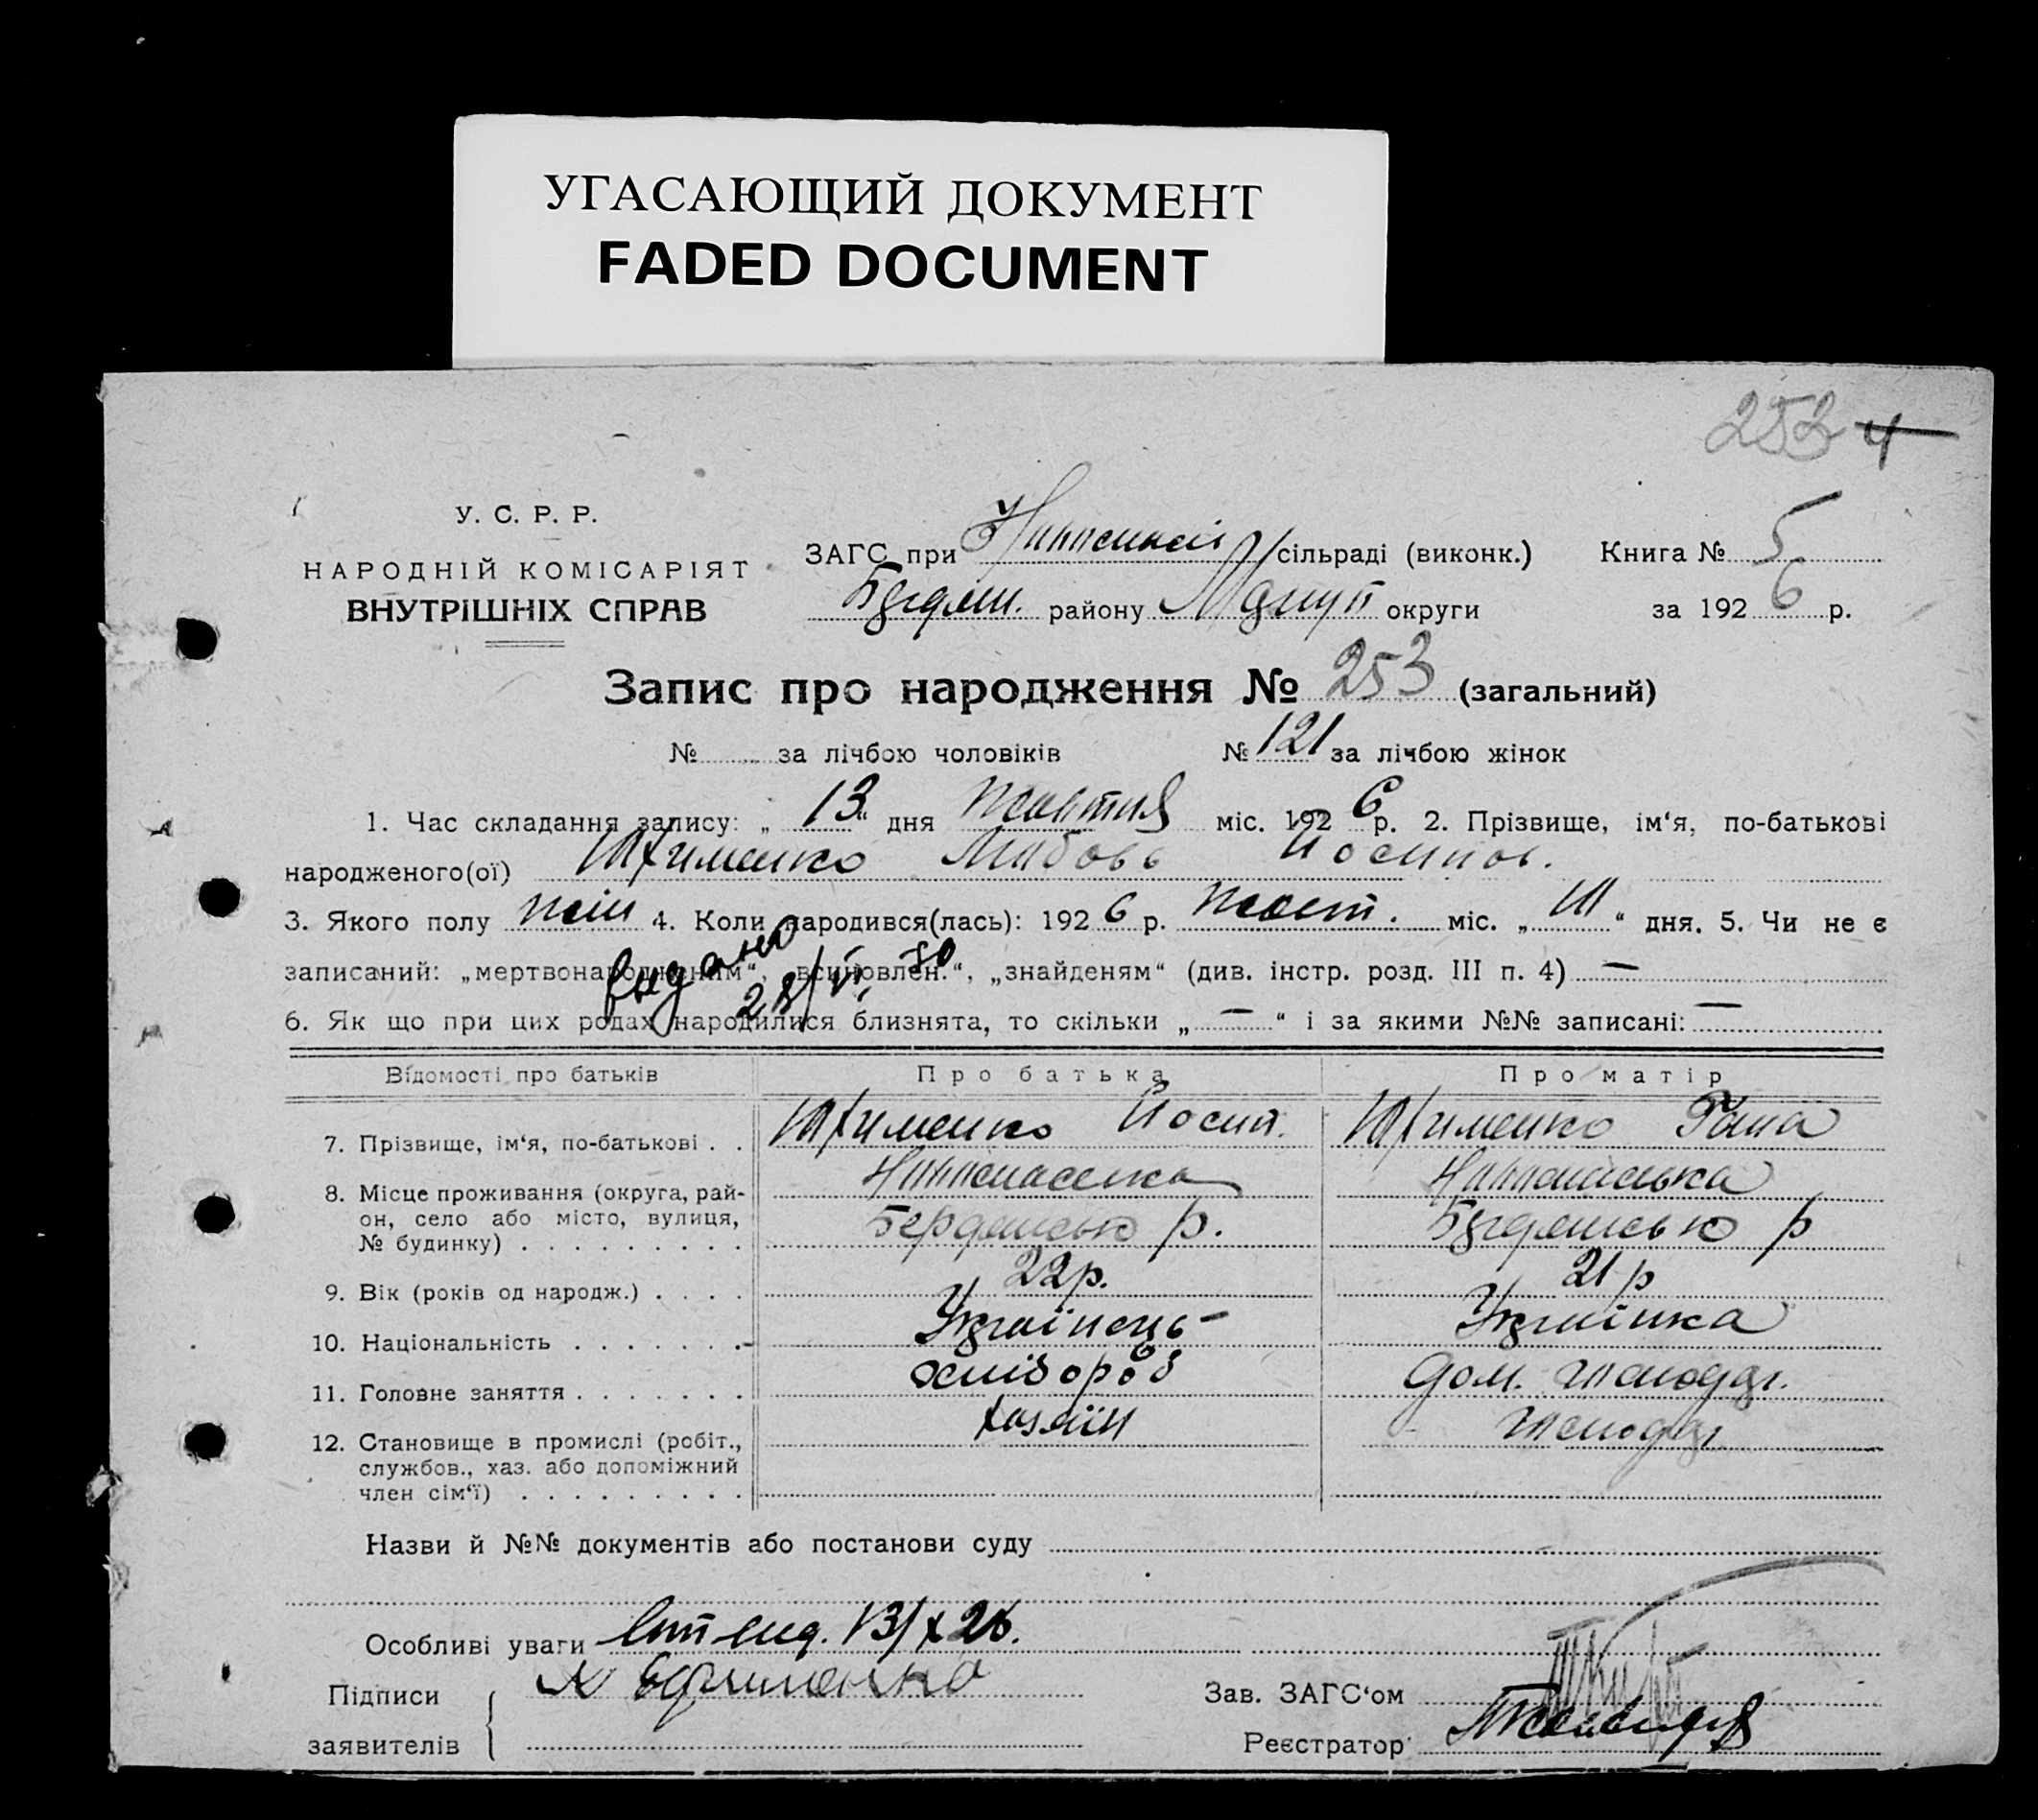 УГАСАЮЩИЙ ДОКУМЕНТ
FADED DOCUMENT
253 4
У. С. Р. Р.
НАРОДНІЙ КОМІСАРІЯТ
ВНУТРІШНІХ СПРАВ
ЗАГС при сільраді (виконк.) Книга № 5
району округи за 1926 р.
Запис про народження № 253 (загальний)
№ за лічбою чоловіків № 121 за лічбою жінок
1. Час складання запису: „13“ дня жовтня міс. 1926 р. 2. Прізвище, ім‘я, по-батькові
народженого(ої) Юхименко Любовь Йосипов.
3. Якого полу жін 4. Коли народився(лась): 1926 р. жовт. міс. „ “ дня. 5. Чи не є
записаний: „мертвонародженим“, „всиновлен.“, „знайденям“ (див. інстр. розд. III п. 4) —
видано 28/VI 30
6. Як що при цих родах народилися близнята, то скільки „—“ і за якими №№ записані: —
Відомості про батьків Про батька Про матір
7. Прізвище, ім‘я, по-батькові . . Юхименко Йосип. Юхименко Гана
8. Місце проживання (округа, рай-
он, село або місто, вулиця, р. р
№ будинку) . . . . . . . . .
9. Вік (років од народж.) . . . . 22р. 21р
10. Національність . . . . . . . Українець Українка
11. Головне заняття . . . . . . . хлібороб Дом. господар.
12. Становище в промислі (робіт., хазяїн господар
службов., хаз. або допоміжний
член сім‘ї) . . . . . . . . .
Назви й №№ документів або постанови суду
Особливі уваги 13/X 26.
Підписи Ефименко Зав. ЗАГС‘ом
заявителів Реєстратор